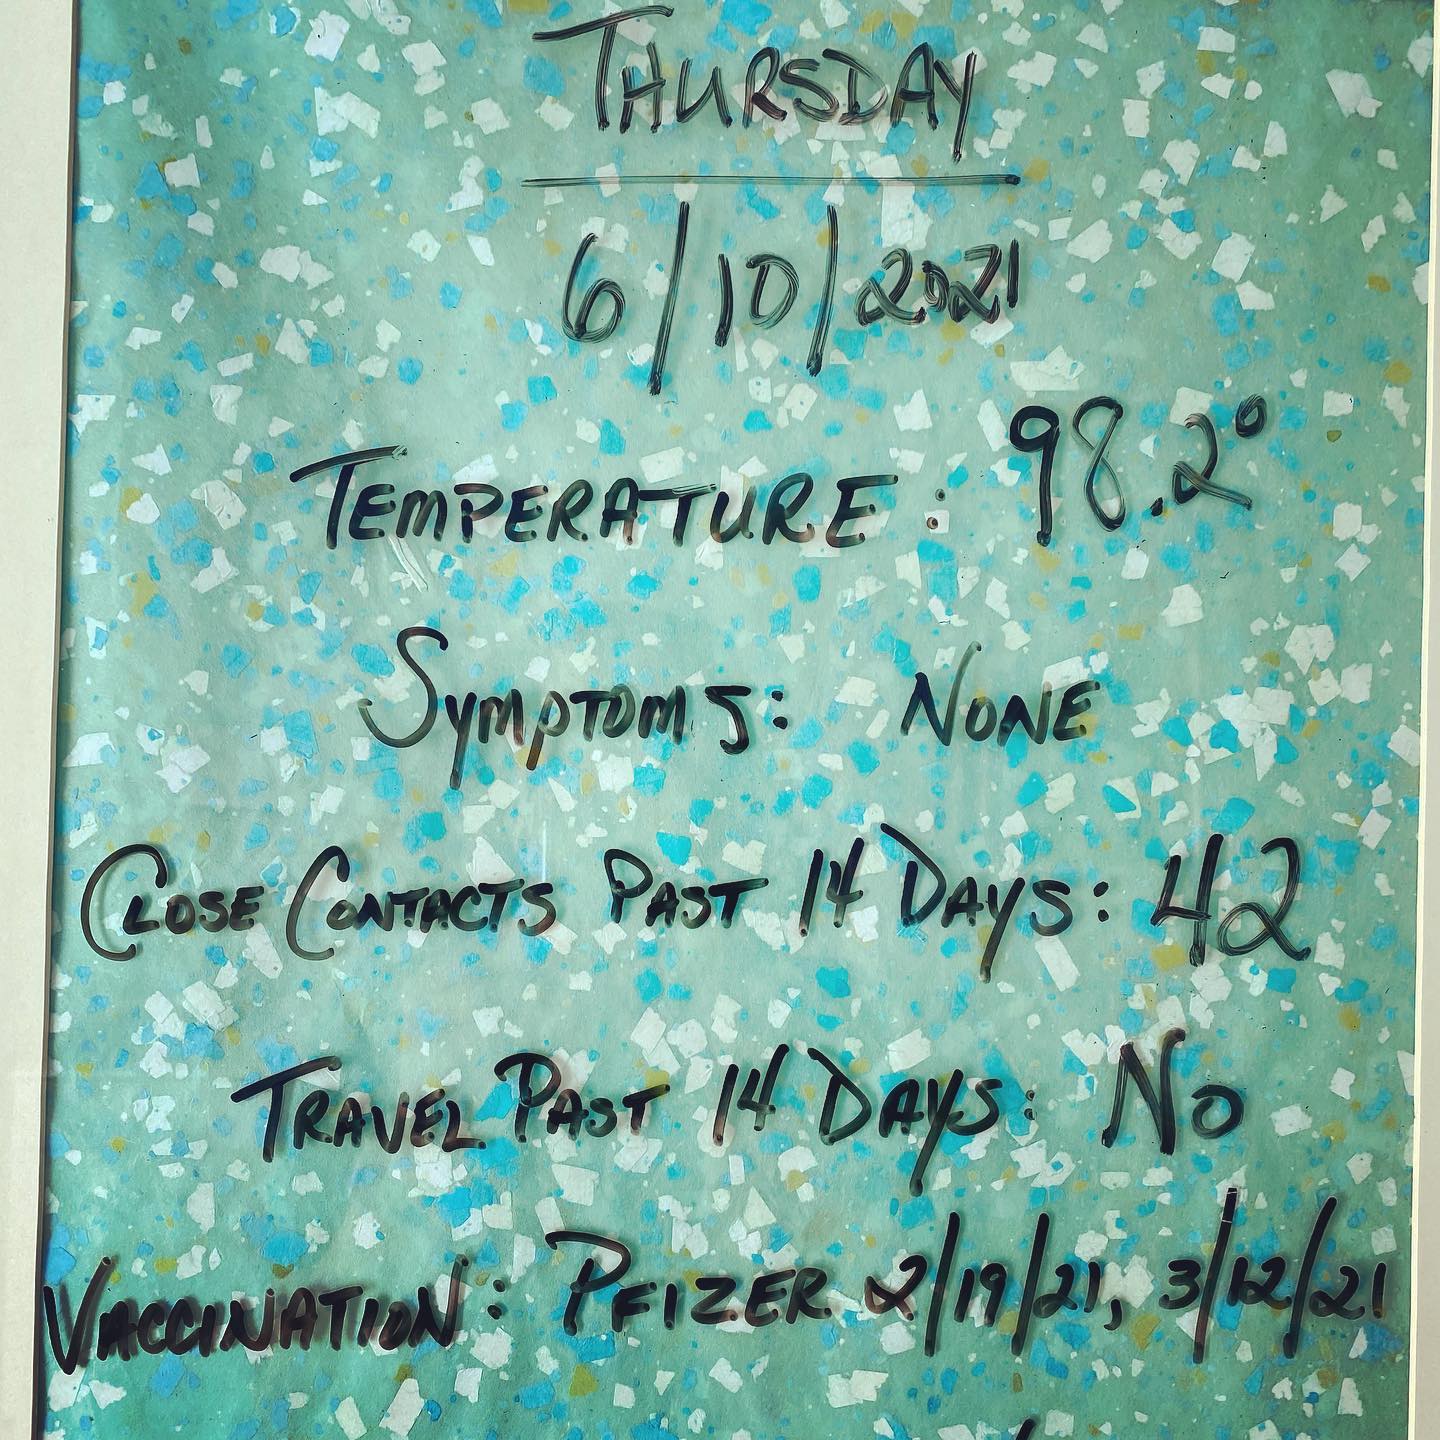 THURSDAY
6/10/2021
TEMPERATURE: 98.2°
SYMPTOMS: NONE
CLOSE CONTACTS PAST 14 DAYS: 42
TRAVEL PAST 14 DAYS: NO
VACCINATION: PFIZER 2/19/21, 3/12/21